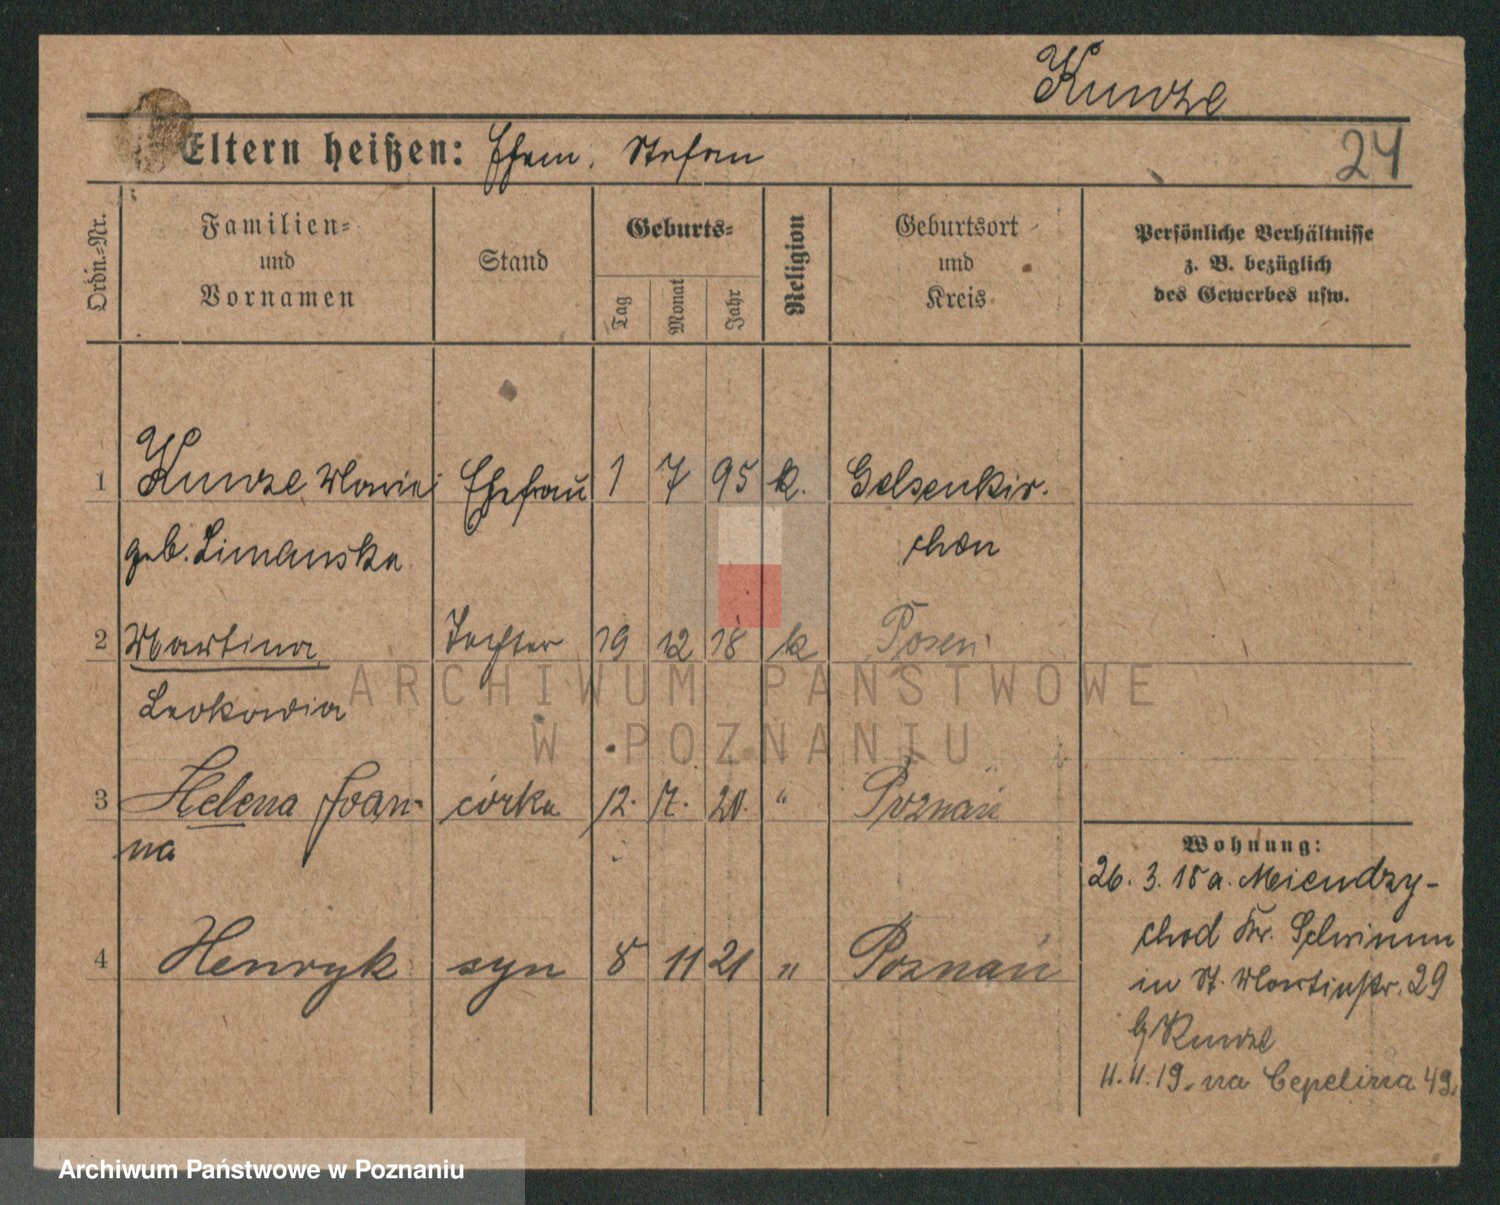 Kunze
Eltern heißen: Ehem. Stefan
24
Ordn.-Nr.
Familien-
und
Vornamen
Stand
Geburts-
Tag
Monat
Jahr
Religion
Geburtsort
und
Kreis
Persönliche Verhältnisse
z. B. bezüglich
des Gewerbes usw.
1 Kunze Marie Ehefrau 1 7 95 k. Gelsenkir-
geb. Limanska chen
2 Martina Tochter 19 12 18 k Posen
Leokadia
3 Helena Joan- córka 12. 7. 20. " Poznań
na
4 Henryk syn 8 11 21 " Poznań
Wohnung:
26. 3. 18 a. Miendzy-
chod Kr. Schrimm
in St. Martinstr. 29
b/ Kunze
11.11.19. na Cepelina 49.
ARCHIWUM PAŃSTWOWE
W POZNANIU
Archiwum Państwowe w Poznaniu